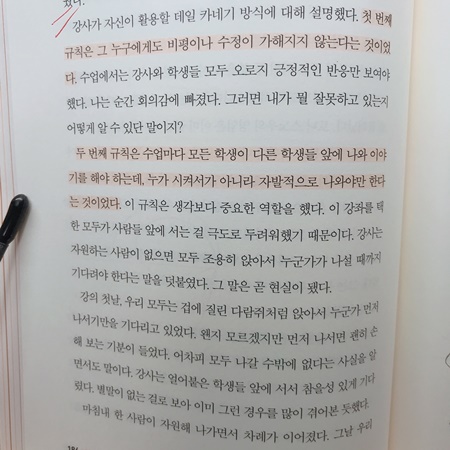 졌다.
강사가 자신이 활용할 데일 카네기 방식에 대해 설명했다. 첫 번째
규칙은 그 누구에게도 비평이나 수정이 가해지지 않는다는 것이었
다. 수업에서는 강사와 학생들 모두 오로지 긍정적인 반응만 보여야
했다. 나는 순간 회의감에 빠졌다. 그러면 내가 뭘 잘못하고 있는지
어떻게 알 수 있단 말이지?
두 번째 규칙은 수업마다 모든 학생이 다른 학생들 앞에 나와 이야
기를 해야 하는데, 누가 시켜서가 아니라 자발적으로 나와야만 한다
는 것이었다. 이 규칙은 생각보다 중요한 역할을 했다. 이 강좌를 택
한 모두가 사람들 앞에 서는 걸 극도로 두려워했기 때문이다. 강사는
자원하는 사람이 없으면 모두 조용히 앉아서 누군가가 나설 때까지
기다려야 한다는 말을 덧붙였다. 그 말은 곧 현실이 됐다.
강의 첫날, 우리 모두는 겁에 질린 다람쥐처럼 앉아서 누군가 먼저
나서기만을 기다리고 있었다. 왠지 모르겠지만 먼저 나서면 괜히 손
해 보는 기분이 들었다. 어차피 모두 나갈 수밖에 없다는 사실을 알
면서도 말이다. 강사는 얼어붙은 학생들 앞에 서서 참을성 있게 기다
렸다. 별말이 없는 걸로 보아 이미 그런 경우를 많이 겪어본 듯했다.
마침내 한 사람이 자원해 나가면서 차례가 이어졌다. 그날 우리